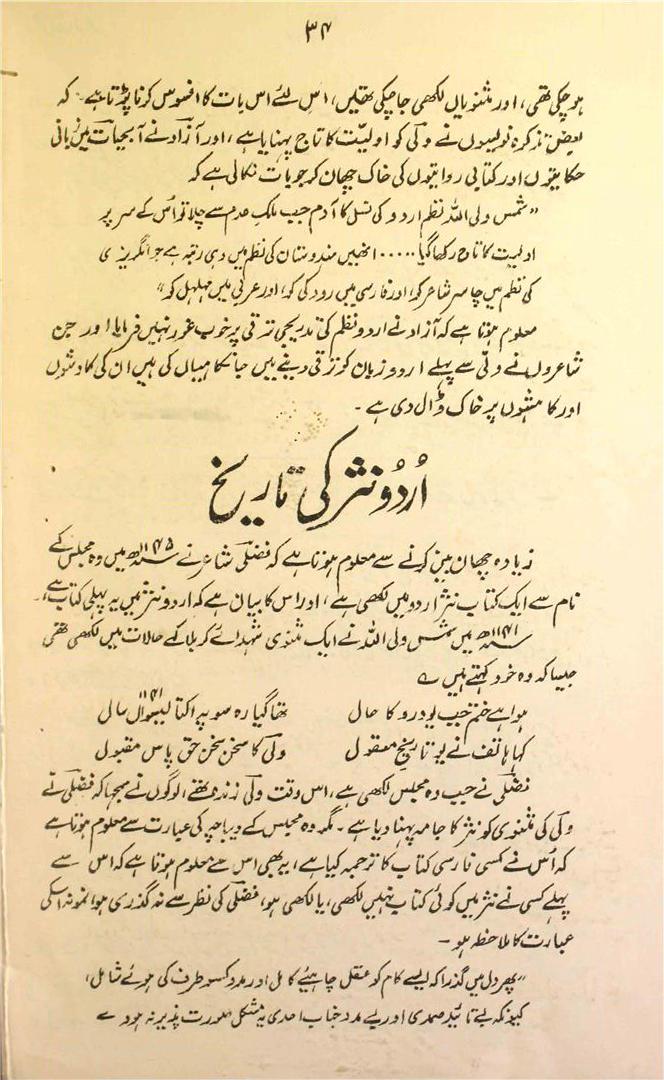 ۳۴
ہوچکی تھی، اور مثنویاں لکھی جاچکی تھیں، اس لئے اس بات کا افسوس کرنا پڑتا ہے۔ کہ
بعض تذکرہ نویسوں نے ولی کو اولیت کا تاج پہنایا ہے، اور آزاد نے آبحیات میں زبانی
حکایتوں اور کتابی روایتوں کی خاک چھان کر جو بات نکالی ہے کہ
"شمس ولی اللہ نظم اردو کی نسل کا آدم جب ملک عدم سے چلا تو اُس کے سر پر
اولیت کا تاج رکھا گیا ..... انھیں ہندوستان کی نظم میں وہی رتبہ ہے جو انگریزی
کی نظم میں چاسر شاعر کو، اور فارسی میں رودکی کو، اور عربی میں مہلہل کو"
معلوم ہوتا ہے کہ آزاد نے اردو نظم کی تدریجی ترقی پر خوب غور نہیں فرمایا اور جن
شاعروں نے ولی سے پہلے اردو زبان کو ترقی دینے میں جانکاہیاں کی ہیں ان کی کاوشوں
اور کاہشوں پر خاک ڈال دی ہے۔
اُردُو نثر کی تاریخ
زیادہ چھان بین کرنے سے معلوم ہوتا ہے کہ فضلی شاعر نے ۱۱۴۵ھ میں دہ مجلس کے
نام سے ایک کتاب نثر اردو میں لکھی ہے، اور اس کا بیان ہے کہ اردو نثر میں یہ پہلی کتاب ہے۔
۱۱۴۱ھ میں شمس ولی اللہ نے ایک مثنوی شہدائے کربلا کے حالات میں لکھی تھی
جیسا کہ وہ خود کہتے ہیں ؎
ہوا ہے ختم جب یو درد کا حال تھا گیارہ سو پہ اکتالیسواں سال ۱۱۴۱
کہا ہاتف نے یو تاریخ معقول ولی کا سخن حق پاس مقبول
فضلی نے جب دہ مجلس لکھی ہے، اس وقت ولی زندہ تھے، لوگوں نے سمجھا کہ فضلی نے
ولی کی مثنوی کو نثر کا جامہ پہنا دیا ہے۔ مگر دہ مجلس کے دیباچہ کی عبارت سے معلوم ہوتا ہے
کہ اُس نے کسی فارسی کتاب کا ترجمہ کیا ہے، یہ بھی اس سے معلوم ہوتا ہے کہ اس سے
پہلے کسی نے نثر میں کوئی کتاب نہیں لکھی، یا لکھی ہو، فضلی کی نظر سے نہ گذری ہو، نمونہ اسکی
عبارت کا ملاحظہ ہو۔
"پھر دل میں گذرا کہ ایسے کام کو عقل چاہیئے کامل اور مدد کسو طرف کی ہوئے شامل،
کیونکہ بے تائید صمدی اور بے مدد جناب احدی یہ مشکل صورت پذیر نہ ہووے